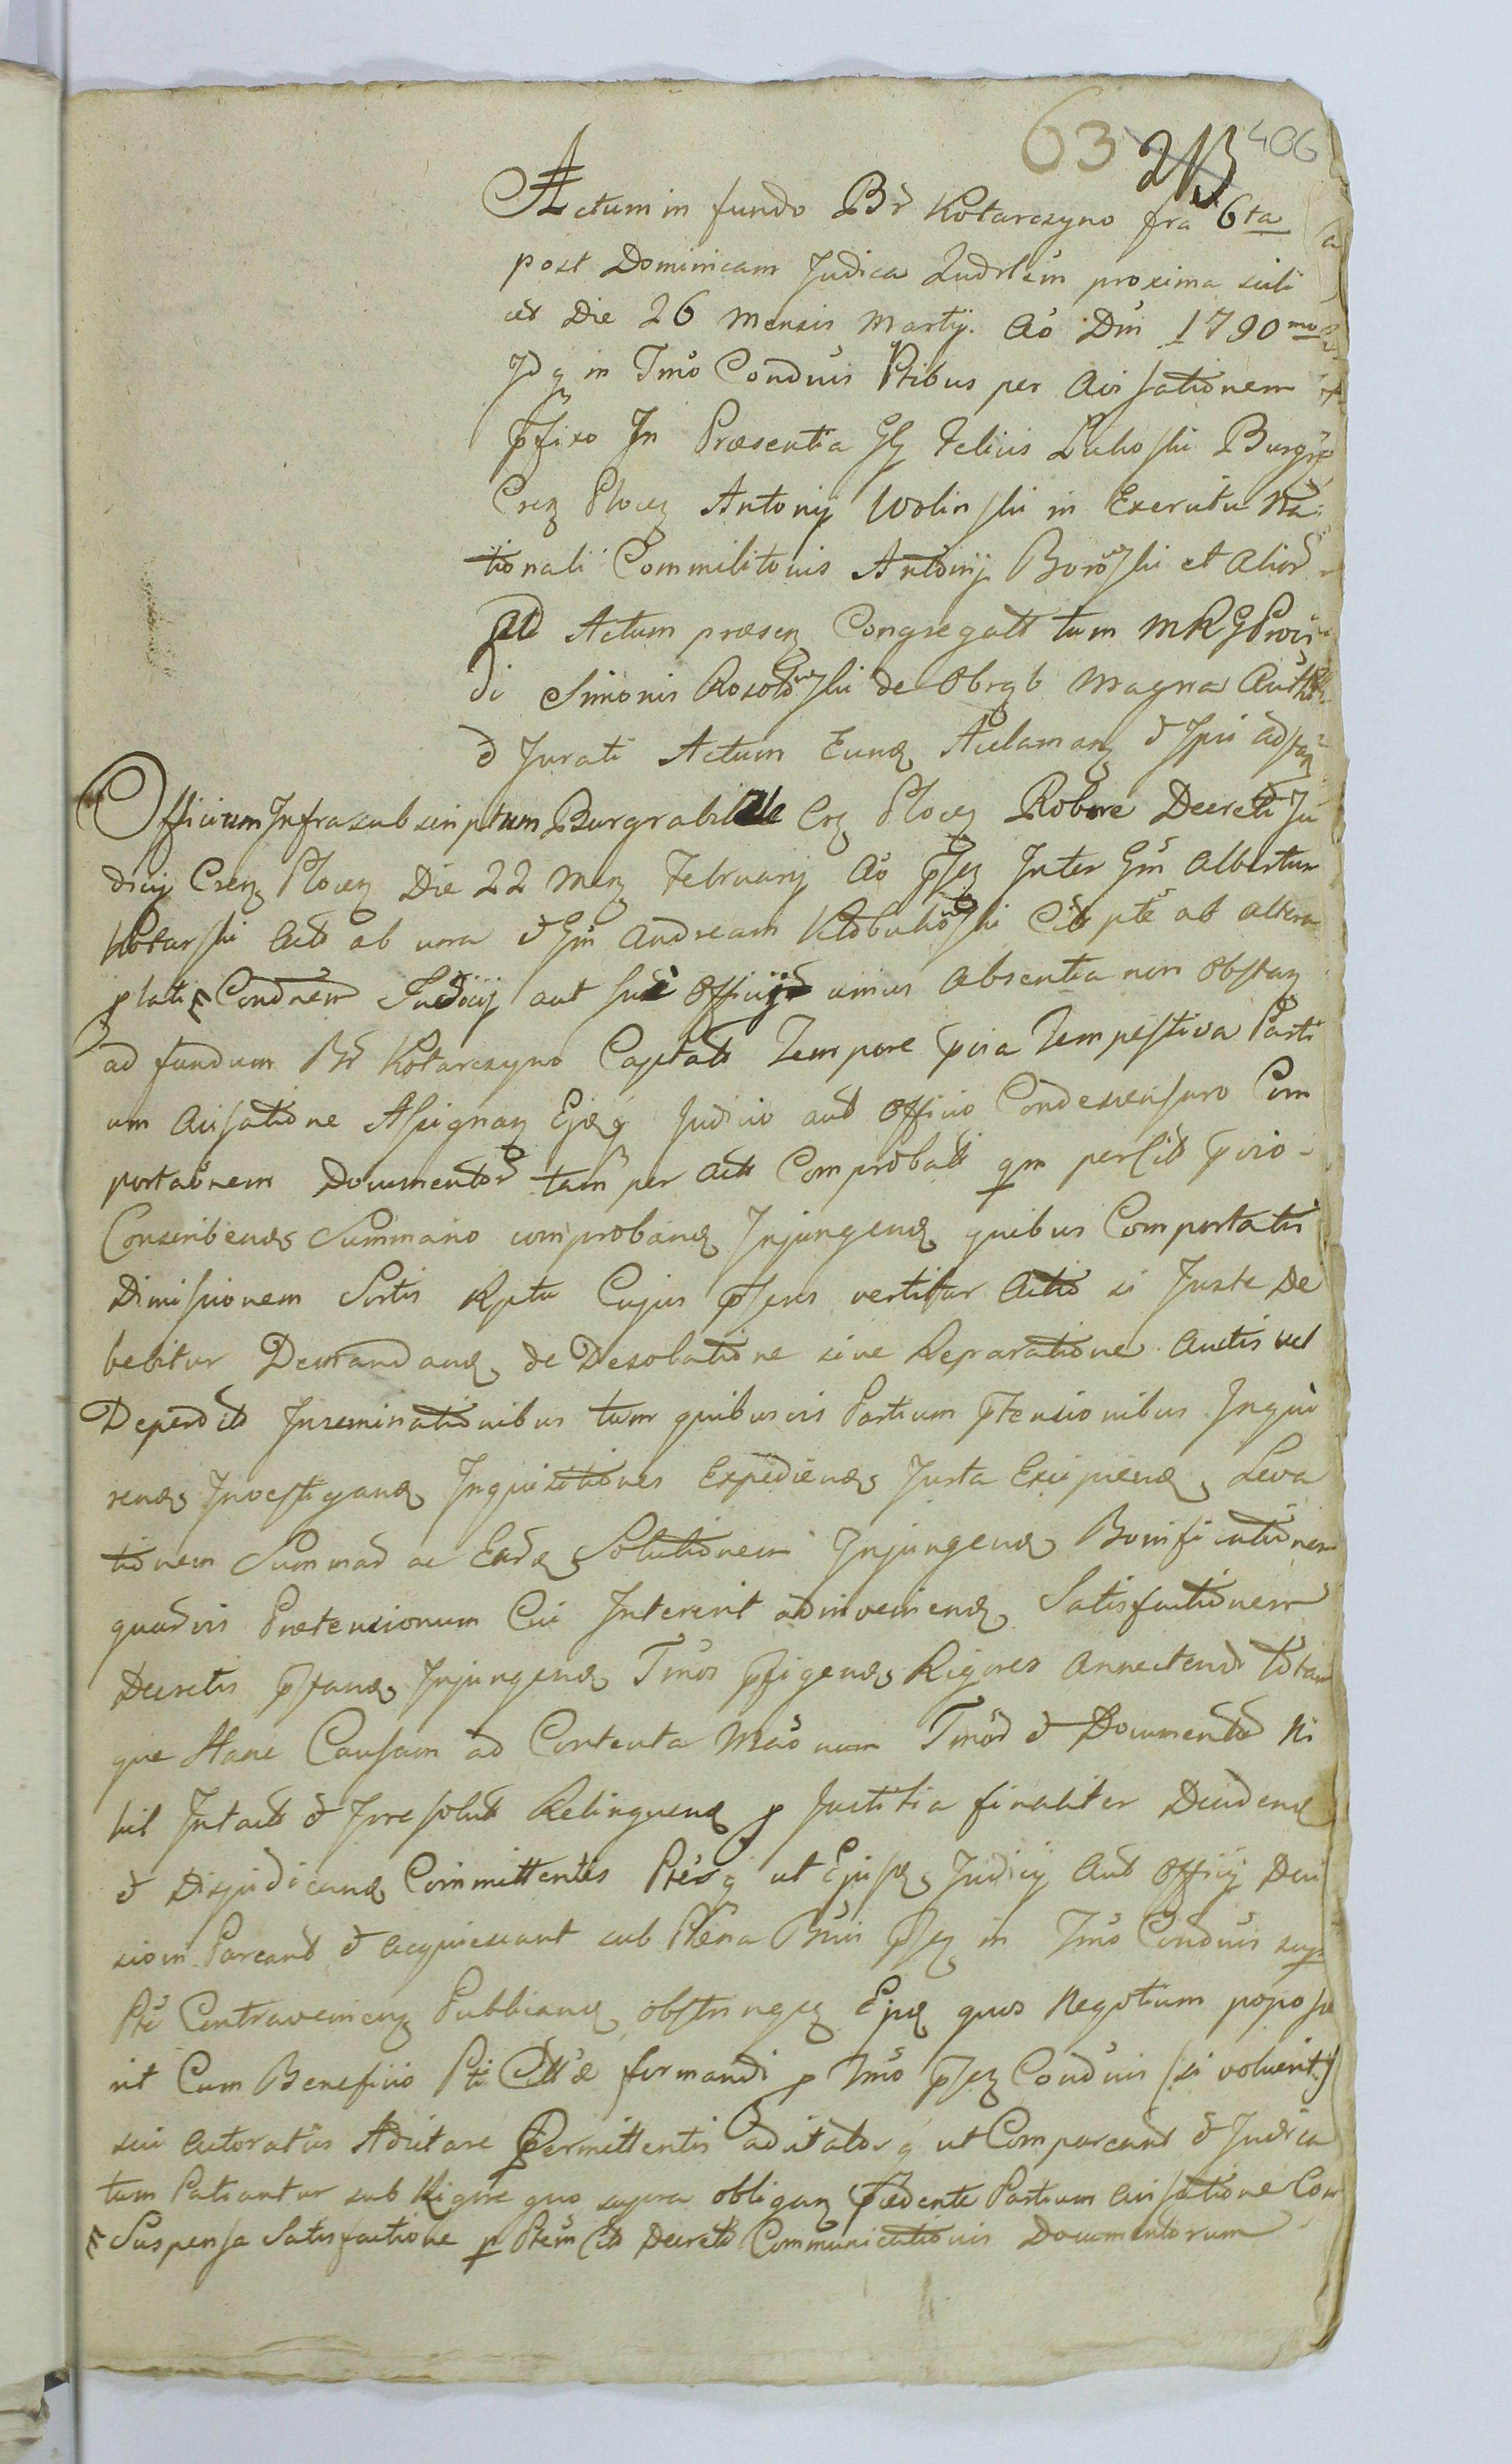 63 213 406
Actum in fundo Br Kotarczyno fra 6ta
post Dominicam Judica Qudrlem proxima scili
cet Die 26 Mensis Martij. Ao Dni 1790mo
Idq in Tmo Conduis Ptibus per Avisationem
pfixo In Præsentia GG Felicis Luko ski Burgr
Crez Plocez Antonij Wolinski in Exercitu Na
tionali Commilitonis Antonij Borowski et Alior
Ad Actum præsez Congregatt tum MRGProvi
di Simonis Rosołowski de Obrąb Magna Auth
& Jurati Actum Eund Aclamanz & Ipsi adstanz
Officium Infrascubscriptum Burgrabiale Crez Plocez Robore Decreti Ju
dicij Crez Plocez Die 22 Menz February Ao psez Inter Gm Albertum
Kotarski Act ab una & Gm Andream Kłobukowski Citt pte ab altera
plati Condnem Judicij aut sui Officij unius Absentia non Obstanz
ad fundum Br Kotarczyno Captato Tempore pvia Tempestiva Parti
um Avisatione Assignanz Ejdq Judicio aut Officio Condescensuro Com
portaonem Documentor tam per Actt Comprobatt qm per Citt pvio
Conscribend Summario comproband Injungend quibus Comportatis
Dimissionem Sortis Rptu Cujus psens vertitur Actio si Juste De
bebitur Demandand, de Desolatione sive Reparatione Auctis vel
Deperdit Inseminationibus tum quibusvis Partium ptensionibus Inqui
rend, Investigand Inquisitiones Expediend, Jurta Excipiend, Leva
tionem Summar ac Eard Solutionem Injungend Bonificationem
quarvis Prætensionum Cui Intererit adinveniend, Satisfactionem
Decretis pstand, Injungend Tmos pfigend, Rigores Annectendi totam
que Hanc Causam ad Contenta Mao num Tmor & Documentor Ni
hil Intactt & Irresolutt Relinquend p Justitia finaliter Decidend
& Disjudicand Committentis Ptesq ut Ejusd, Judicij Aut Officij Deci
sioni Pareant & acquiescant sub Pæna Bnni psez in Tmo Conduis supr
Pte Contravenienz Publicand obstringez Ejsd quos Negotium popose
rit Cum Beneficio Pti Cittæ formandi p Tmo psez Conduis (si voluerit)
sui Actoratus Adcitare Permittentis adcitatorq ut Compareant & Judica
tum Patiantur sub Rigore quo supra obliganz pcedente Partium Avisatione Con
Suspensa Satisfactione p Ptem Citt Decreto Communicationis Documentorum